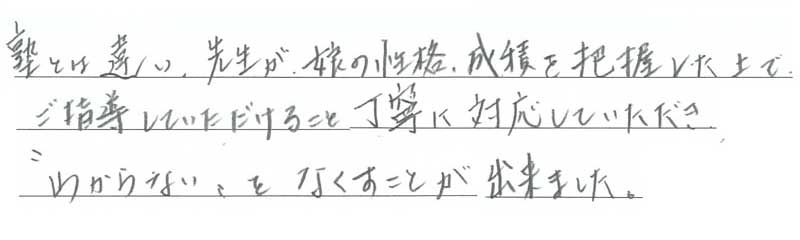 塾とは違い、先生が、娘の性格、成績を把握した上で、
ご指導していただけること丁寧に対応していただき、
"わからない"をなくすことが出来ました。